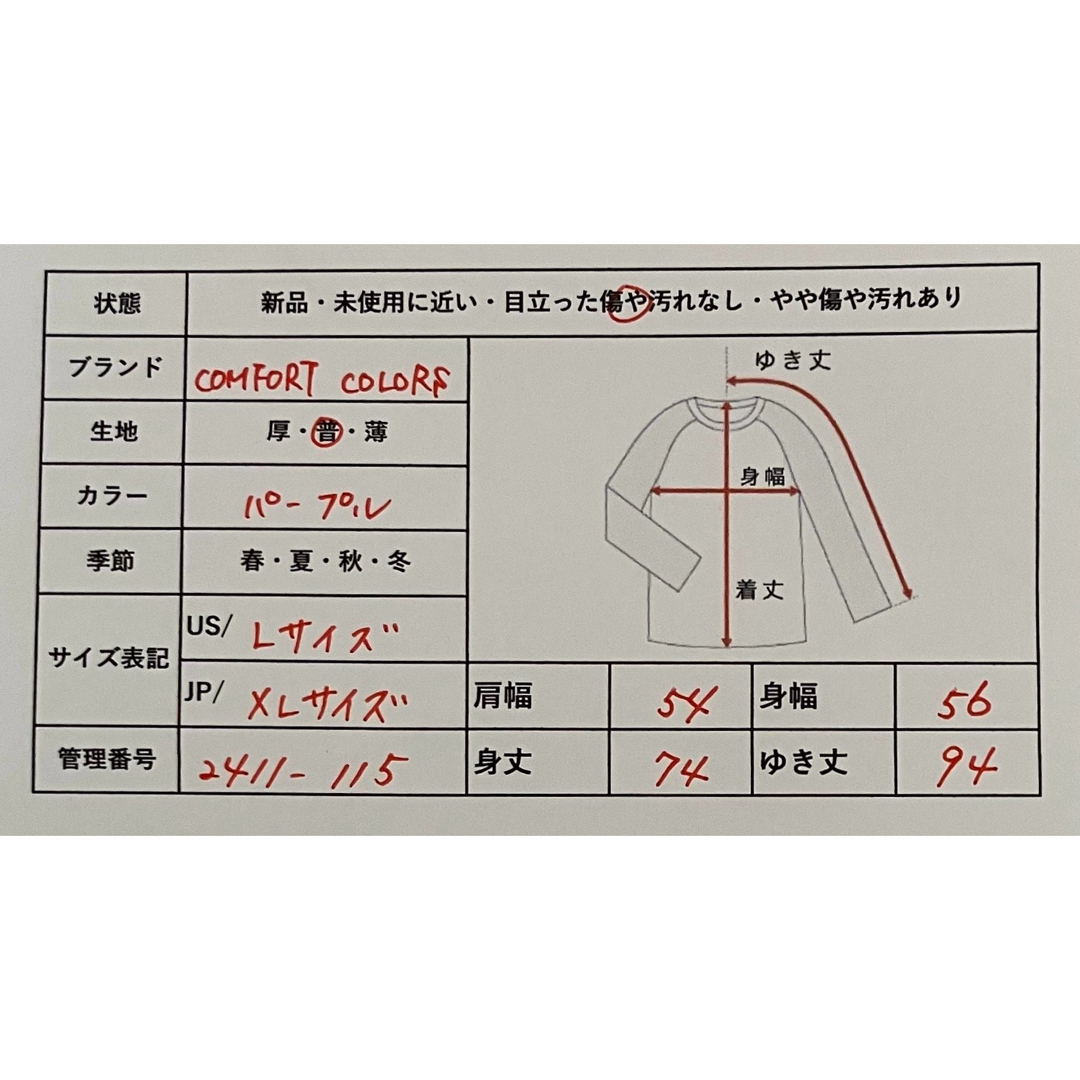 状態 新品・未使用に近い・目立った傷や汚れなし・やや傷や汚れあり
ブランド COMFORT COLORS
生地 厚・普・薄
カラー パープル
季節 春・夏・秋・冬
サイズ表記
US/ Lサイズ
JP/ XLサイズ
管理番号 2411-115
ゆき丈
身幅
着丈
肩幅 54 身幅 56
身丈 74 ゆき丈 94